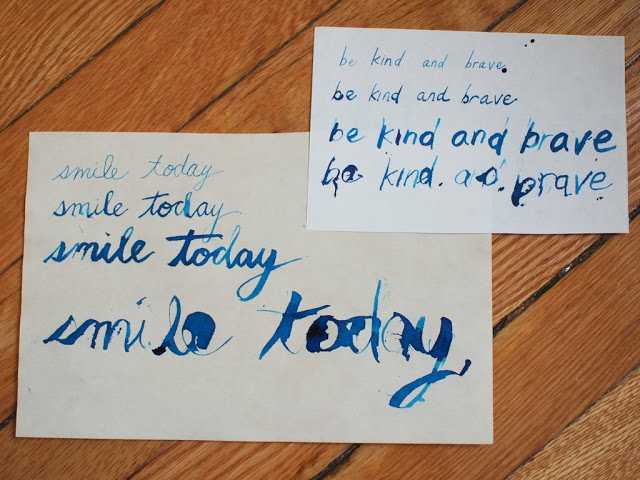 be kind and brave
be kind and brave
be kind and brave
be kind and brave
smile today
smile today
smile today
smile today